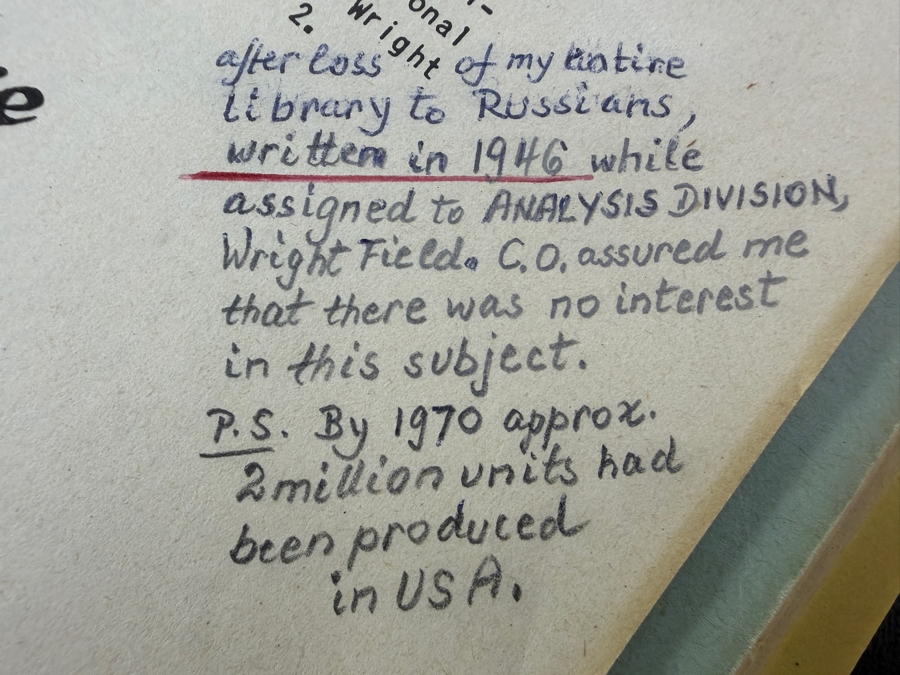 2.
onal
Wright
e
after loss of my entire
library to Russians,
written in 1946 while
assigned to ANALYSIS DIVISION,
Wright Field. C.O. assured me
that there was no interest
in this subject.
P.S. By 1970 approx.
2 million units had
been produced
in USA.